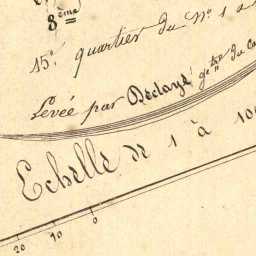 8ème
15e quartier du No 1 a
Levée par Declayé gtre du Ca
Echelle de 1 à 100
20 10 0